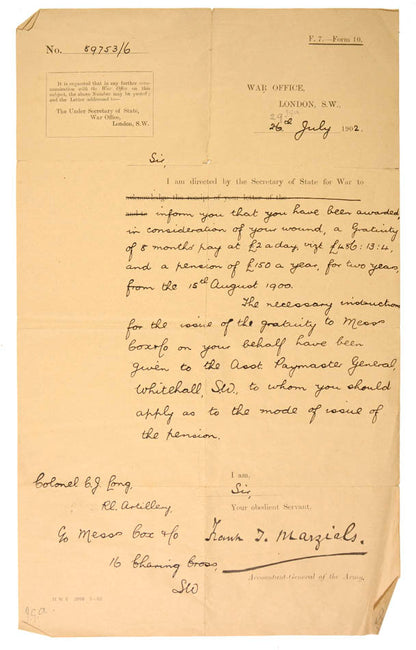 F. 7.—Form 10.
No. 89753/6
It is requested that in any further com-
munication with the War Office on this
subject, the above Number may be quoted;
and the Letter addressed to—
The Under Secretary of State,
War Office,
London, S.W.
WAR OFFICE,
LONDON, S.W.,
26th July 1902.
Sir,
I am directed by the Secretary of State for War to
acknowledge the receipt of your letter of the
inform you that you have been awarded,
in consideration of your wound, a Gratuity
of 8 months' pay at £2 a day, vizt £486:13:4,
and a pension of £150 a year, for two years,
from the 15th August 1900.
The necessary instructions
for the issue of the gratuity to Messrs
Cox & Co on your behalf have been
given to the Asst Paymaster General,
Whitehall, SW, to whom you should
apply as to the mode of issue of
the pension.
I am,
Sir,
Your obedient Servant,
Frank T. Marzials.
Accountant-General of the Army.
Colonel C.J. Long
Rl. Artillery,
C/o Messrs Cox & Co
16 Charing Cross,
SW